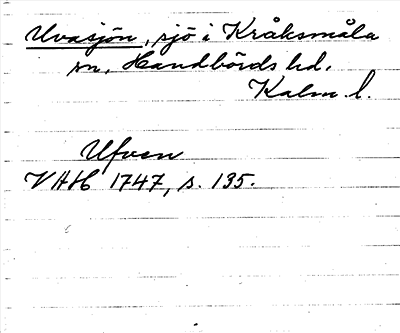 Uvasjön, sjö i Kråksmåla
sn, Handbörds hd.
Kalm. l.
Ufven
VHH 1747, s. 135.